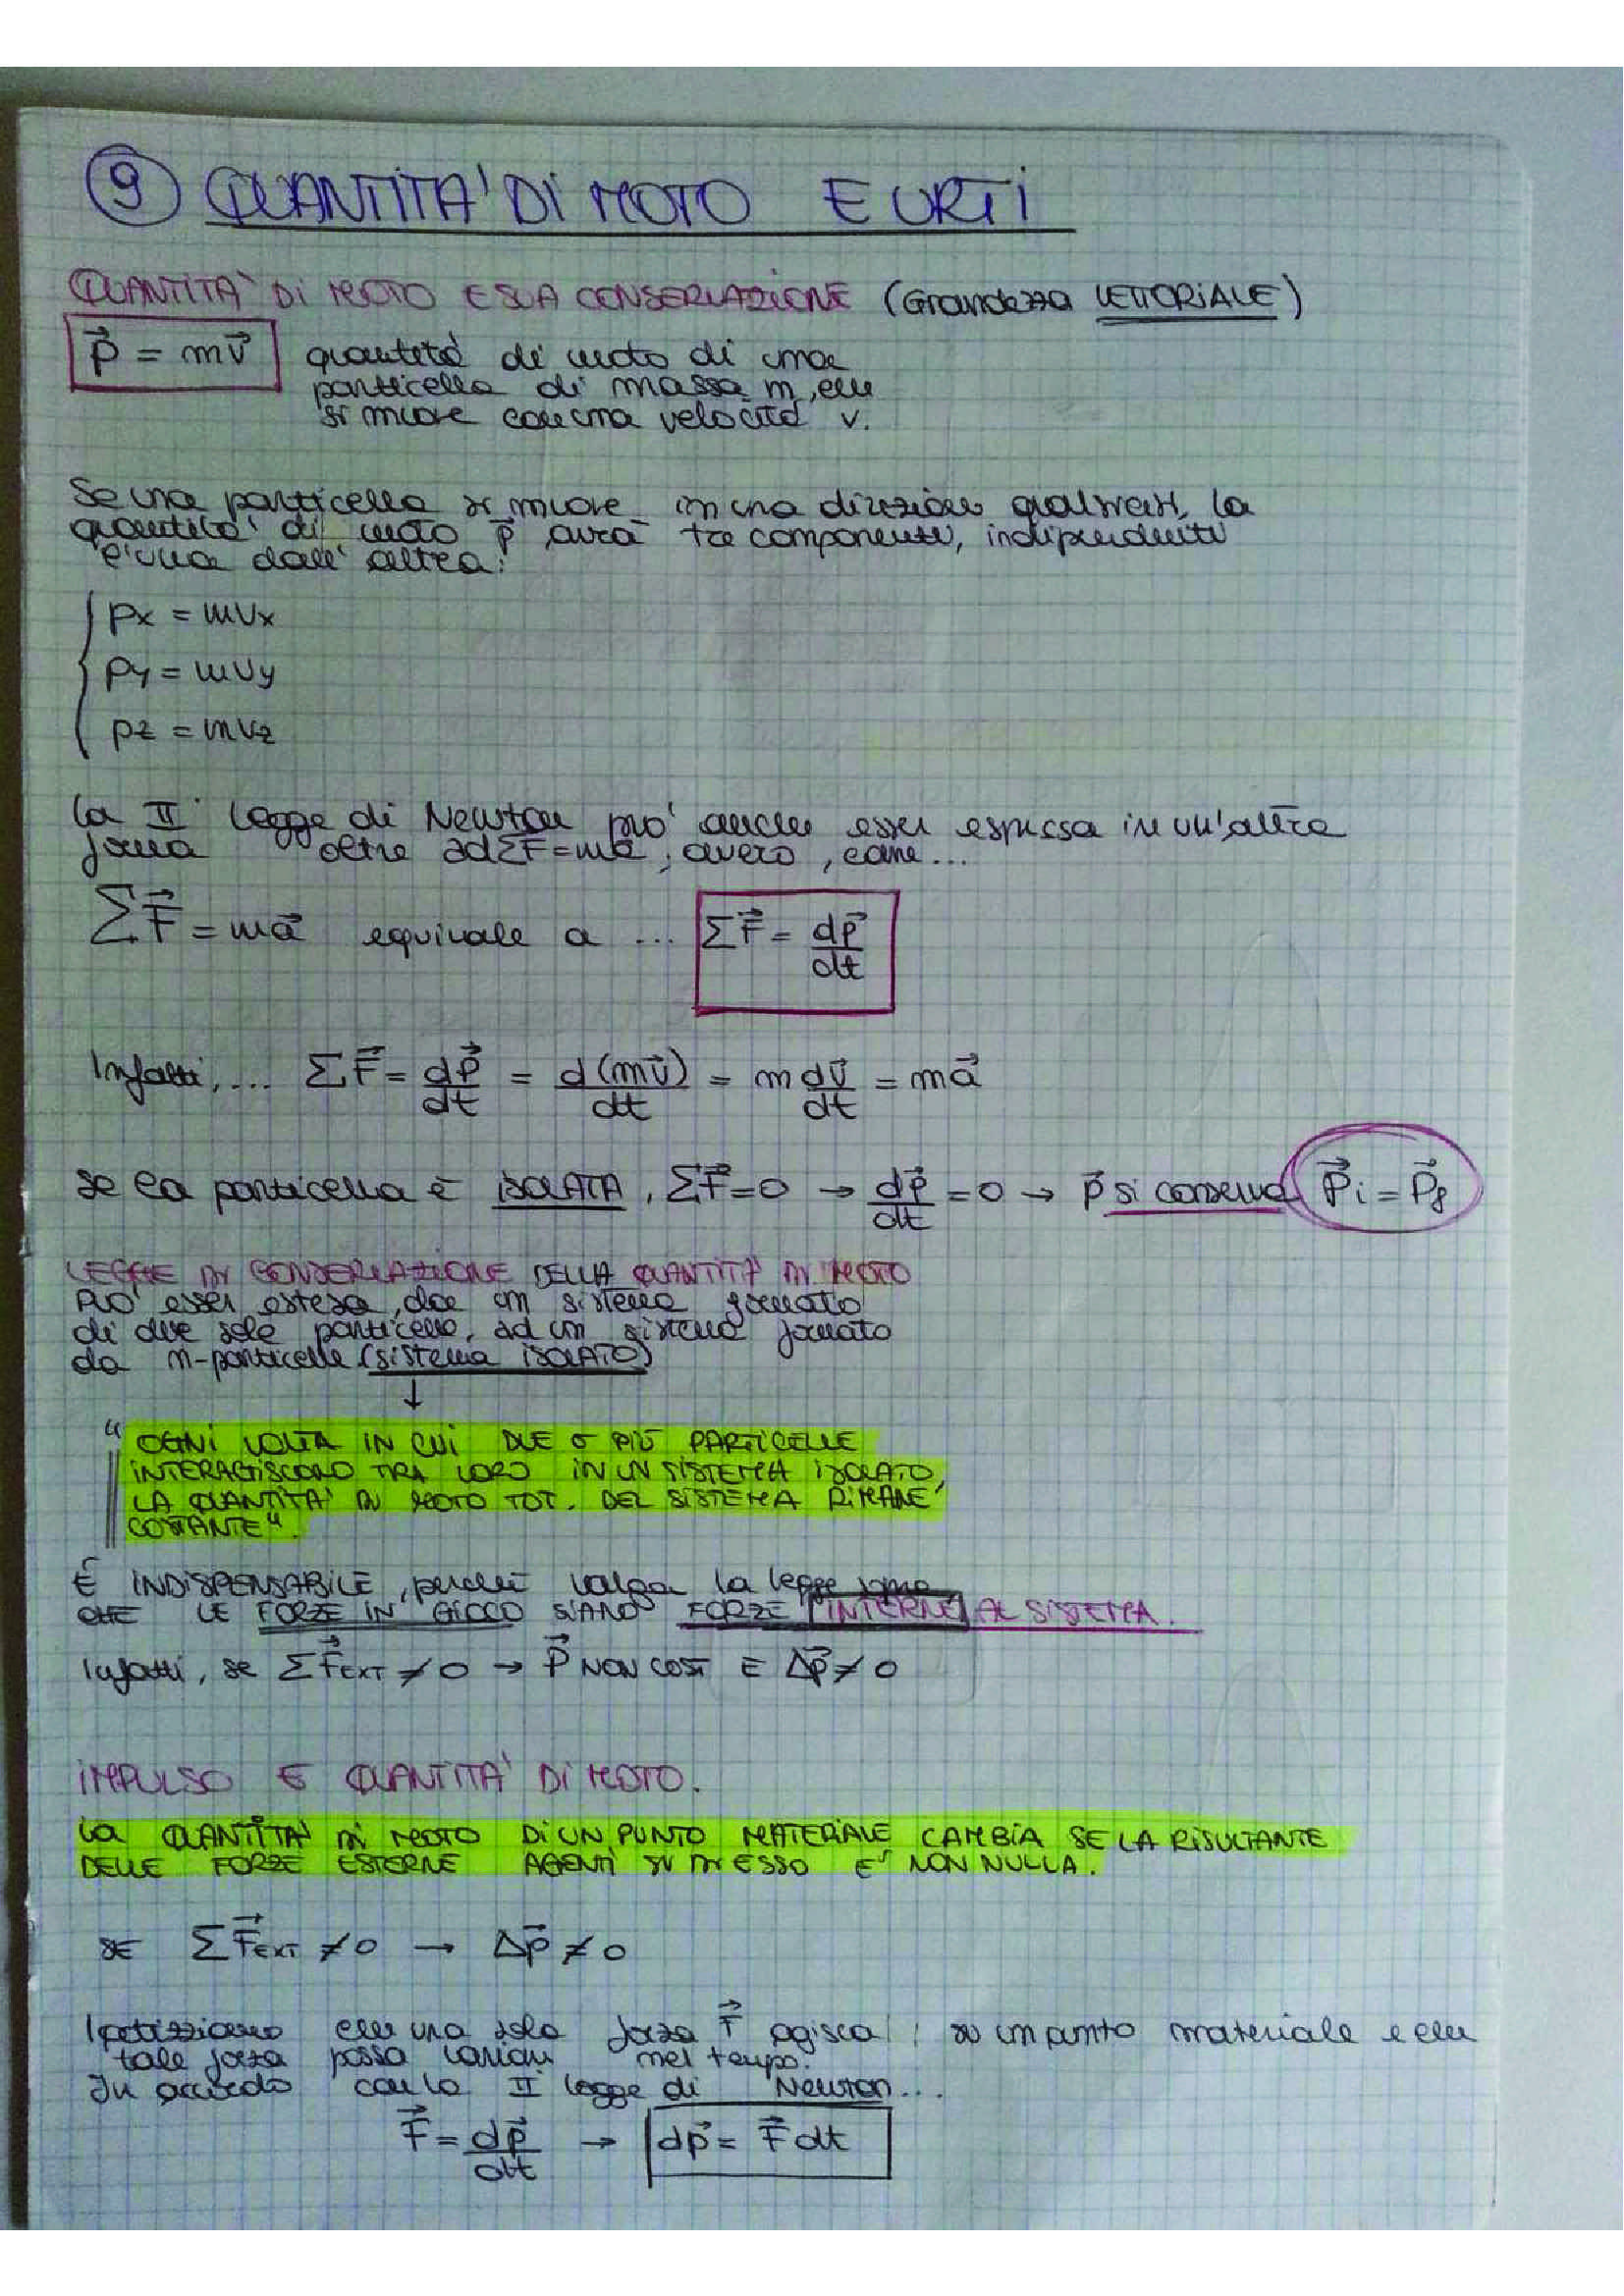 9 QUANTITA' DI MOTO E URTI
QUANTITA' DI MOTO E SUA CONSERVAZIONE (Grandezza VETTORIALE)
p⃗ = mv⃗ quantità di moto di una
particella di massa m, che
si muove con una velocità v.
Se una particella si muove in una direzione qualsiasi, la
quantità di moto p⃗ avrà tre componenti, indipendenti
l'una dall'altra:
px = mvx
py = mvy
pz = mvz
La II legge di Newton può anche esser espressa in un'altra
forma oltre ad ΣF⃗=ma⃗, ovvero, come...
ΣF⃗ = ma⃗ equivale a ... ΣF⃗ = dp⃗/dt
Infatti, ... ΣF⃗ = dp⃗/dt = d(mv⃗)/dt = m dv⃗/dt = ma⃗
se la particella è ISOLATA, ΣF⃗=0 → dp⃗/dt = 0 → p⃗ si conserva P⃗i = P⃗f
LEGGE DI CONSERVAZIONE DELLA QUANTITA' DI MOTO
PUO' esser estesa, da un sistema formato
di due sole particelle, ad un sistema formato
da n-particelle (sistema ISOLATO)
↓
"OGNI VOLTA IN CUI DUE O PIÙ PARTICELLE
INTERAGISCONO TRA LORO IN UN SISTEMA ISOLATO,
LA QUANTITA' DI MOTO TOT. DEL SISTEMA RIMANE
COSTANTE".
É INDISPENSABILE, perchè valga la legge
CHE LE FORZE IN GIOCO SIANO FORZE INTERNE AL SISTEMA.
Infatti, se ΣF⃗EXT ≠ 0 → P⃗ NON COST E Δp⃗ ≠ 0
IMPULSO E QUANTITA' DI MOTO.
La QUANTITA' DI MOTO DI UN PUNTO MATERIALE CAMBIA SE LA RISULTANTE
DELLE FORZE ESTERNE AGENTI SU DI ESSO E' NON NULLA.
SE ΣF⃗EXT ≠ 0 → Δp⃗ ≠ 0
Ipotizziamo che una sola forza F⃗ agisca su un punto materiale e che
tale forza possa variare nel tempo.
In accordo con la II legge di Newton...
F⃗ = dp⃗/dt → dp⃗ = F⃗ dt